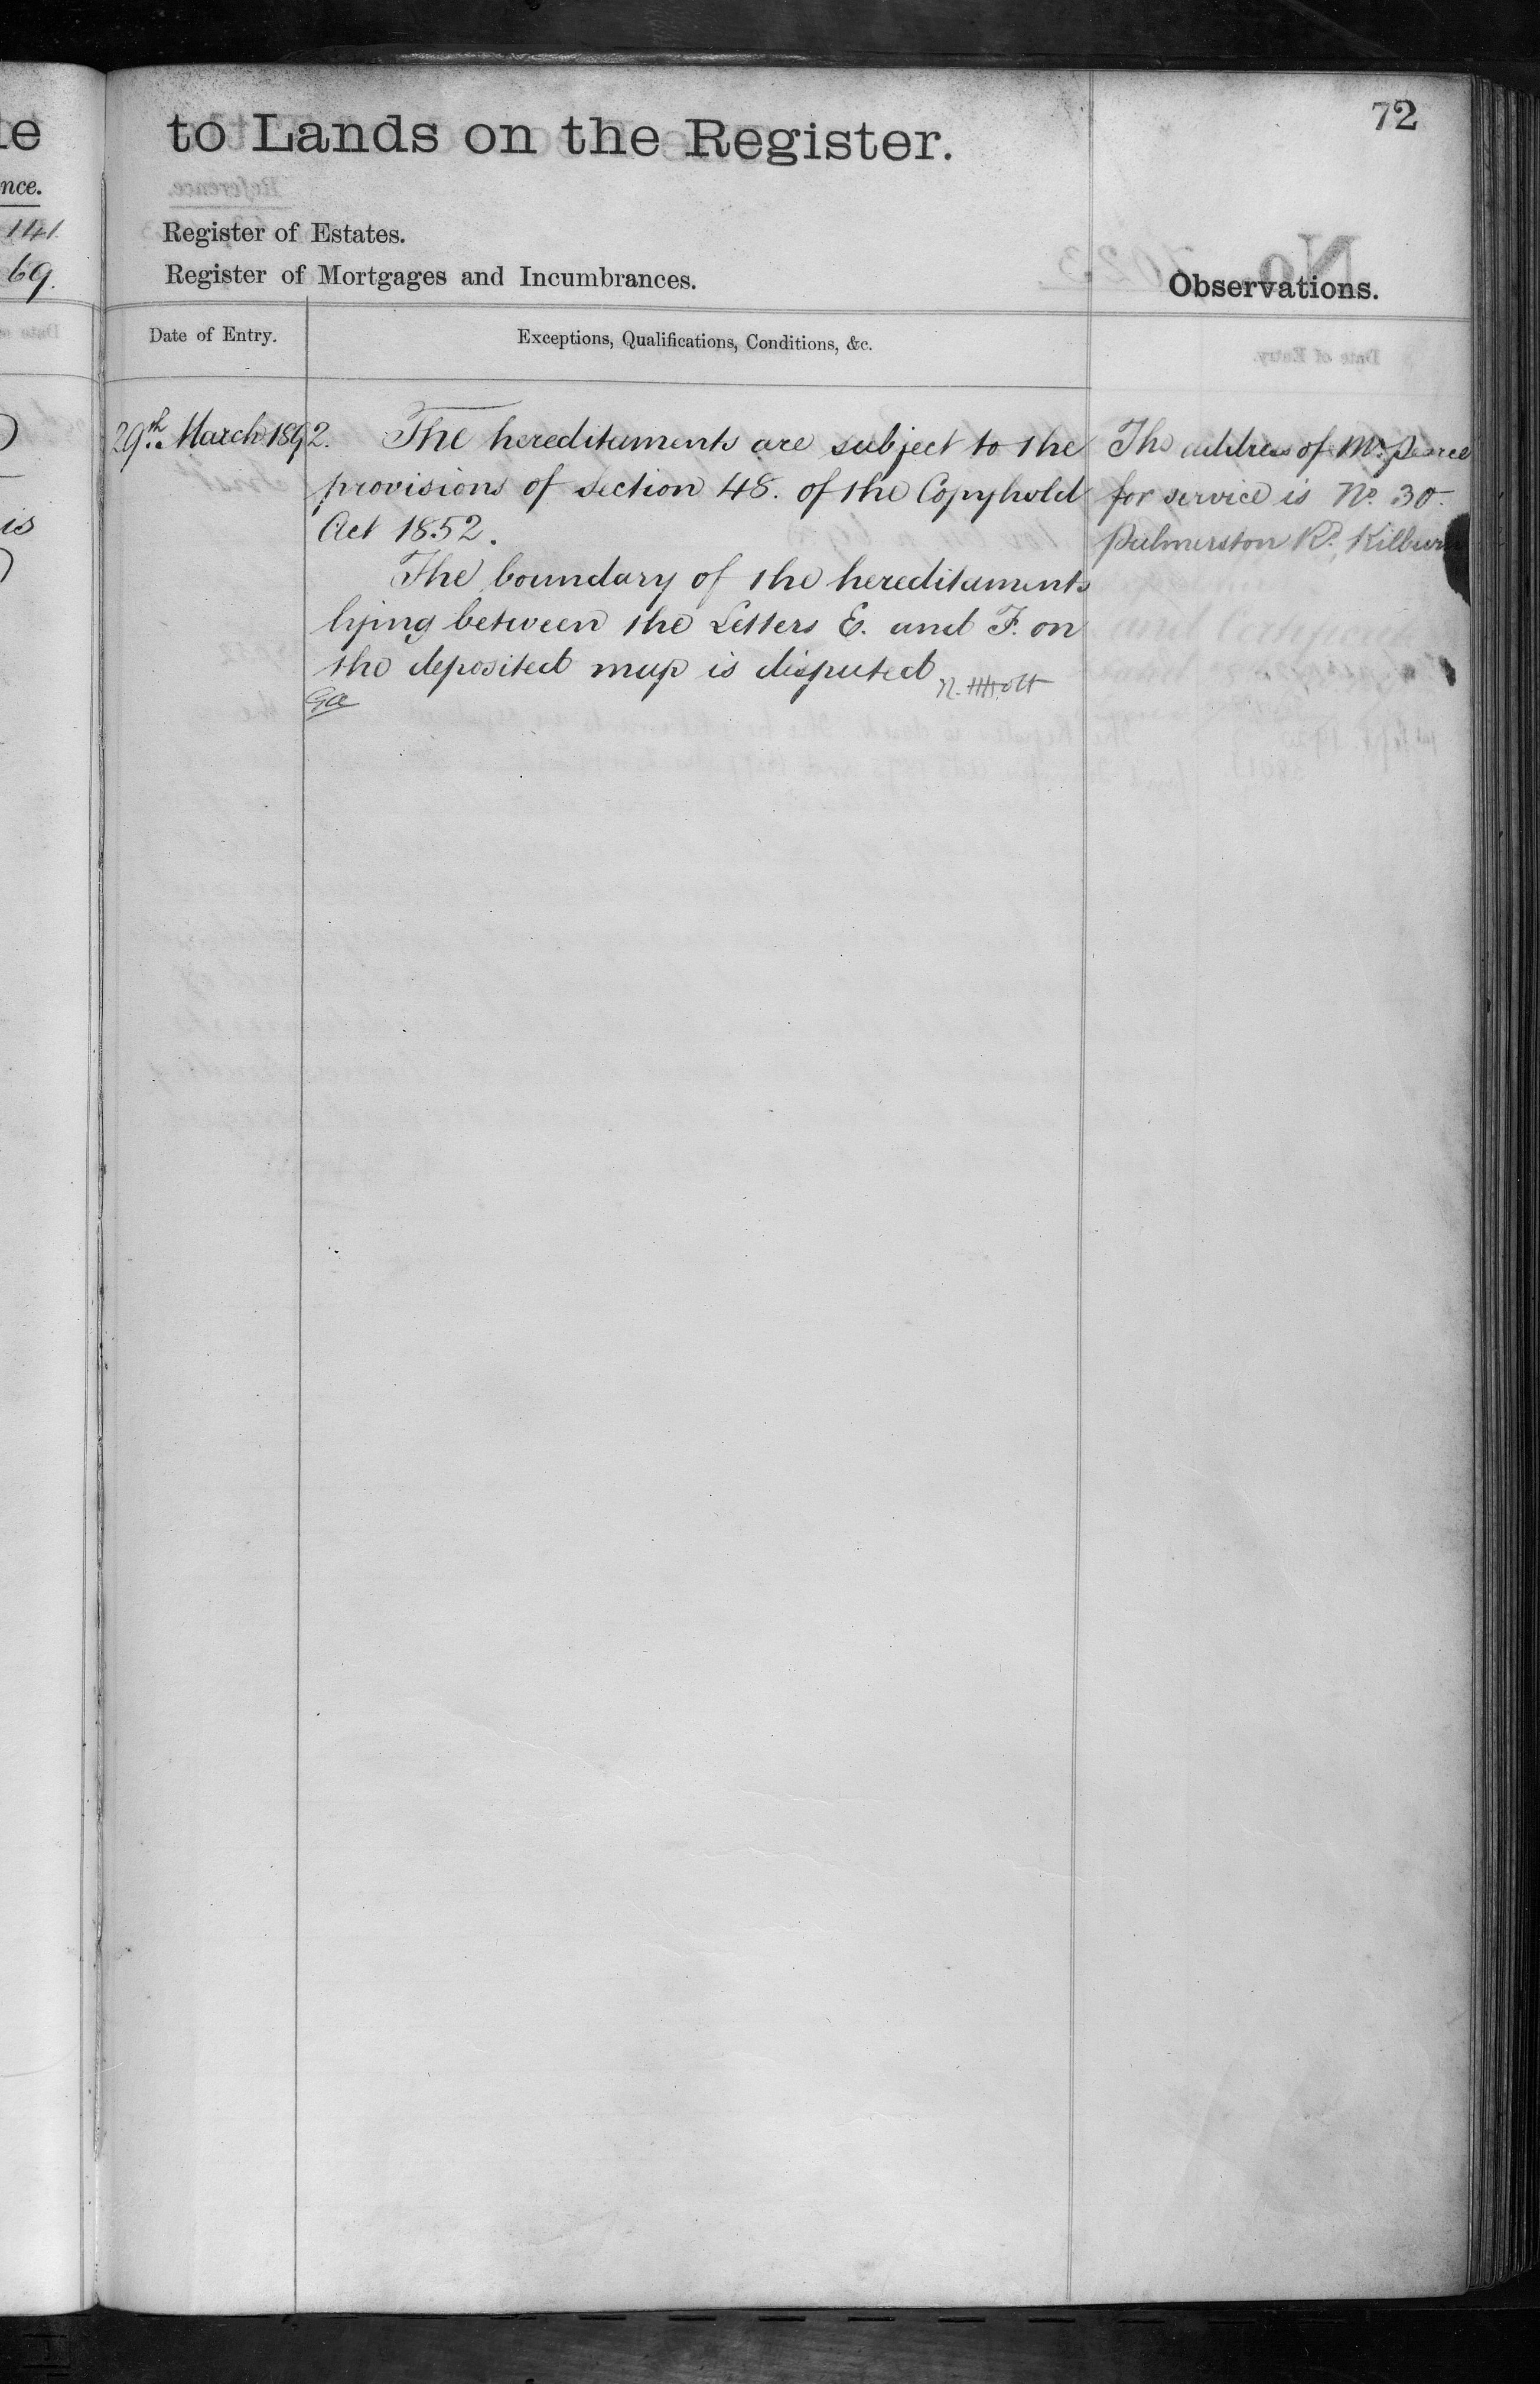 72
to Lands on the Register.
Register of Estates.
Register of Mortgages and Incumbrances.
Observations.
Date of Entry.
Exceptions, Qualifications, Conditions, &c.
29th March 1892.
The hereditaments are subject to the
provisions of section 48. of the Copyhold
Act 1852.
The boundary of the hereditaments
lying between the Letters E. and F. on
the deposited map is disputed
The address of Mr. Pearce
for service is No. 30.
Palmerston Rd. Kilburn
nce.
141.
69.
is